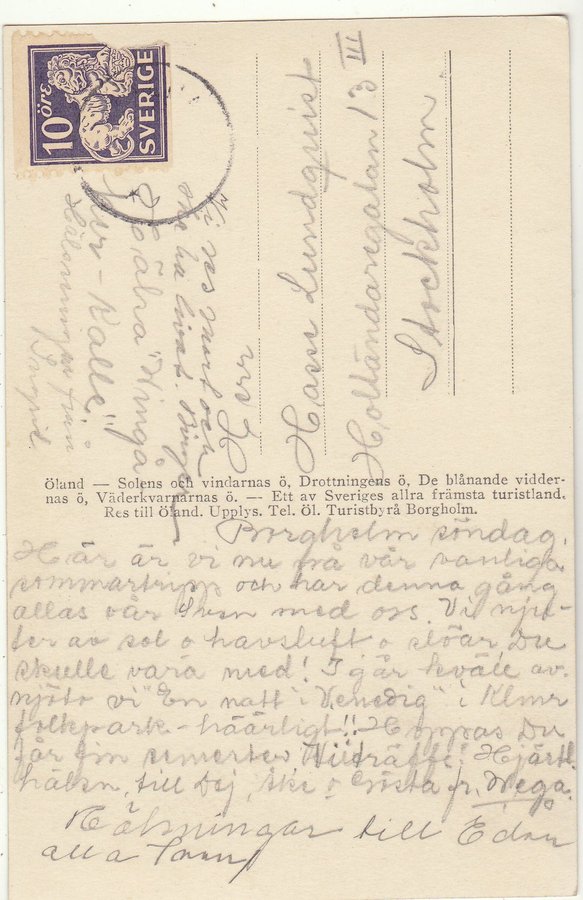 10 öre
SVERIGE
Herr
Hans Lundquist
Holländaregatan 13 III
Stockholm.
Vi res mort och
ha livat.
"Vingå
Per-Kalle"
Hälsningar från
Ingrid.
Öland — Solens och vindarnas ö, Drottningens ö, De blånande vidder-
nas ö, Väderkvarnarnas ö. — Ett av Sveriges allra främsta turistland.
Res till Öland. Upplys. Tel. Öl. Turistbyrå Borgholm.
Borgholm söndag.
Här är vi nu på vår vanliga
sommartripp och har denna gång
allas vår Sven med oss. Vi nju-
ter av sol o havsluft o slöar. Du
skulle vara med! I går kväll av-
njöto vi "En natt i Venedig" i Klmr
folkpark - häärligt!! Hoppas Du
får fin semester Hjärtl.
hälsn. till Dej, o Gösta fr. Mega.
Hälsningar till Eder
alla